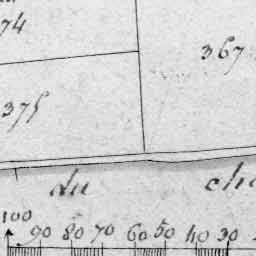 74
367
375
du
100 90 80 70 60 50 40 30